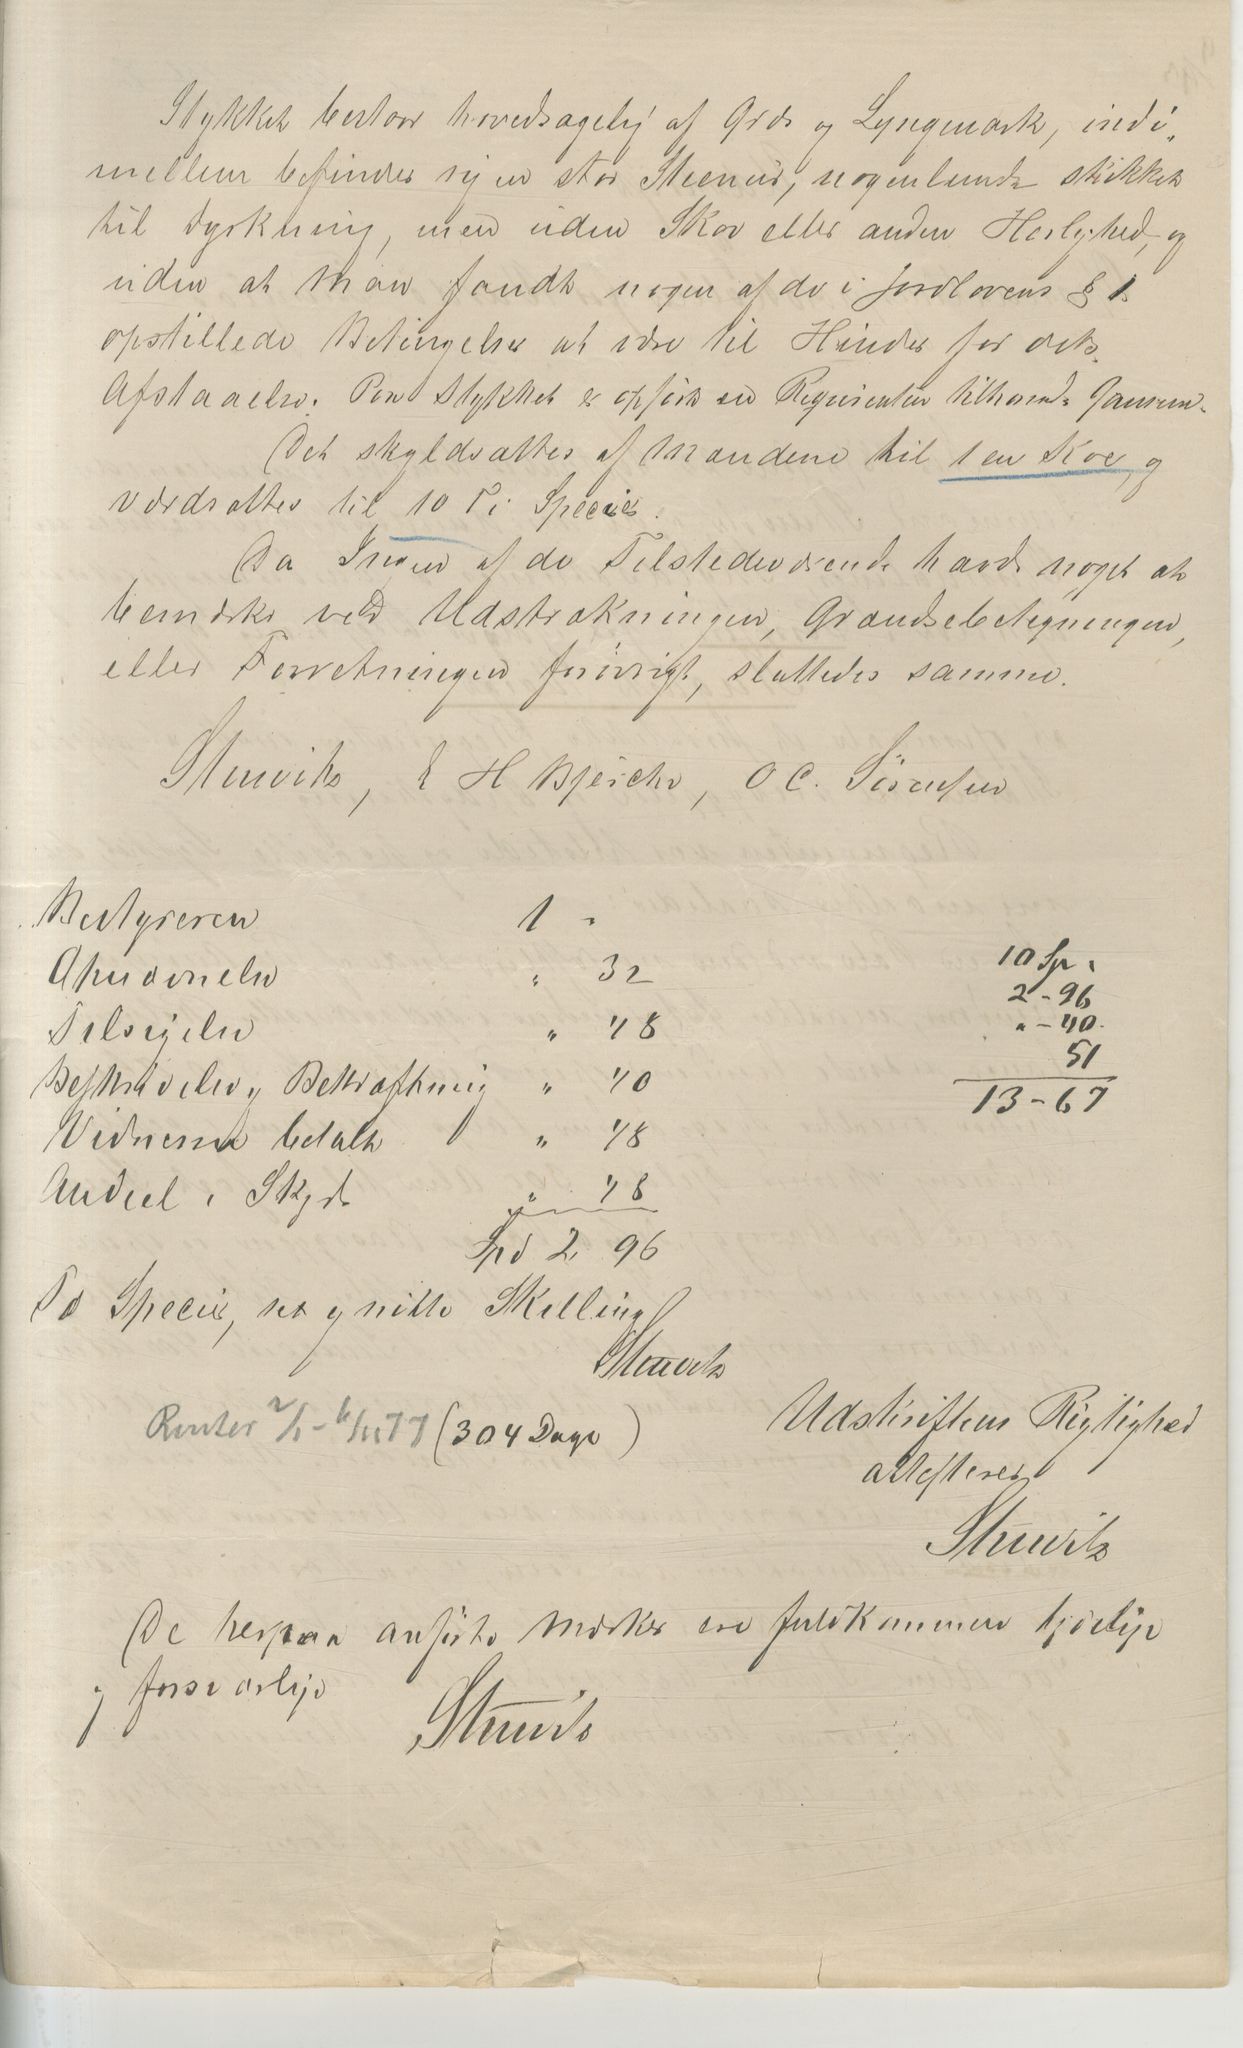 Stykket bestaar hovedsagelig af Græs og Lyngmark, indi„
mellem befinder sig en stor Steenur, nogenlunde skikket
til Dyrkning, men uden Skov eller anden Herlighed, og
uden at man fandt nogen af de i Jordlovens § 1
opstillede Betingelser at være til Hinder for dets
Afstaaelse. Paa Stykket er opført en Reqvirenten tilhørende Gamme.
Det skyldsattes af Mændene til 1 en Koe, og
værdsattes til 10 Ti Species.
Da Ingen af de Tilstedeværende havde noget at
bemærke ved Udstrækningen, Grændsebetegningen,
eller Forretningen forøvrigt, sluttedes samme.
Stuwitz, E H Bjerche, O C. Sörensen
Bestyreren 1 "
" 32
Tilsigelse " 48
Beskrivelse og Bekræftning " 40
Vidnerne betalt " 48
Andeel i Skyds " 48
Spd 2. 96
To Species, sex og nitti Skilling
Stuwitz
10 Sp "
2 - 96
" - 40.
51
13 - 67
Renter 2/1 - 77 (304 Dage)
Udskriftens Rigtighed
attesteres
Stuwitz
De herpaa anførte Mærker ere fuldkommen kjdelige
og forsvarlige
Stuwitz